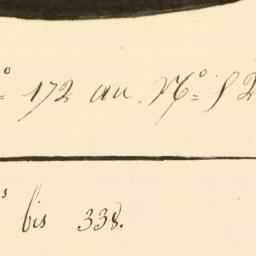 172 au Nº
s bis 338.